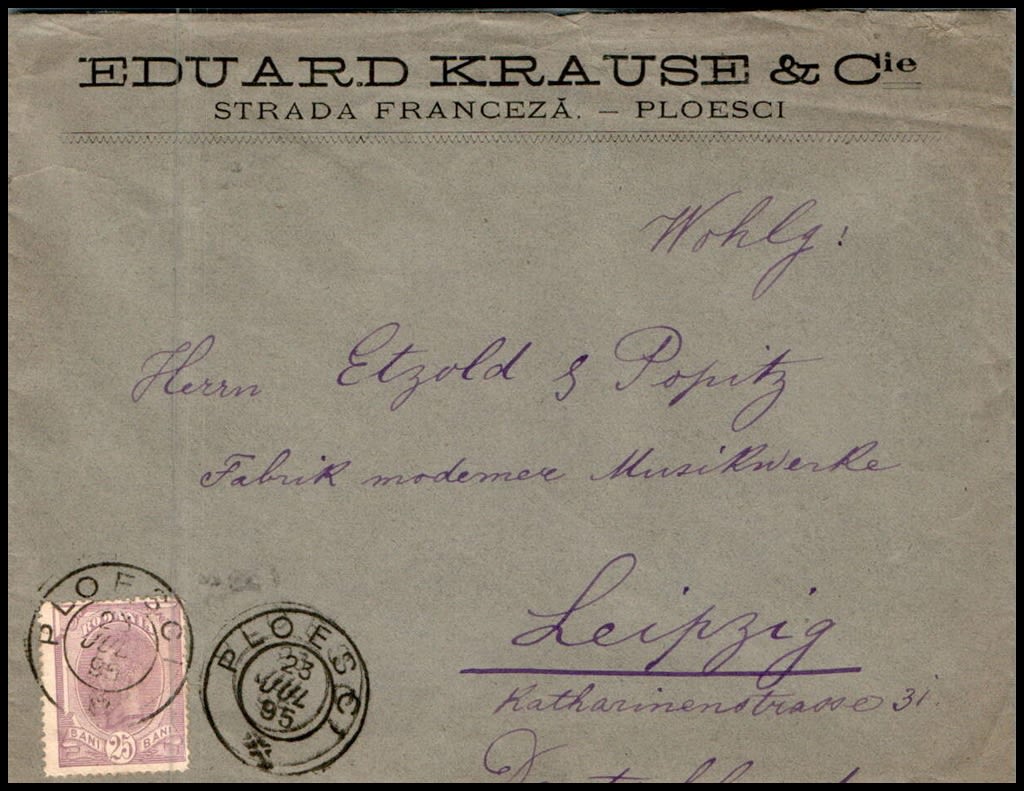 EDUARD KRAUSE & Cie
STRADA FRANCEZĂ. — PLOESCI
Wohlg!
Herrn Etzold & Popitz
Fabrik moderner Musikwerke
Leipzig
Katharinenstrasse 31.
PLOESCI
JUL
95
BANI 25 BANI
PLOESCI
23
JUL
95